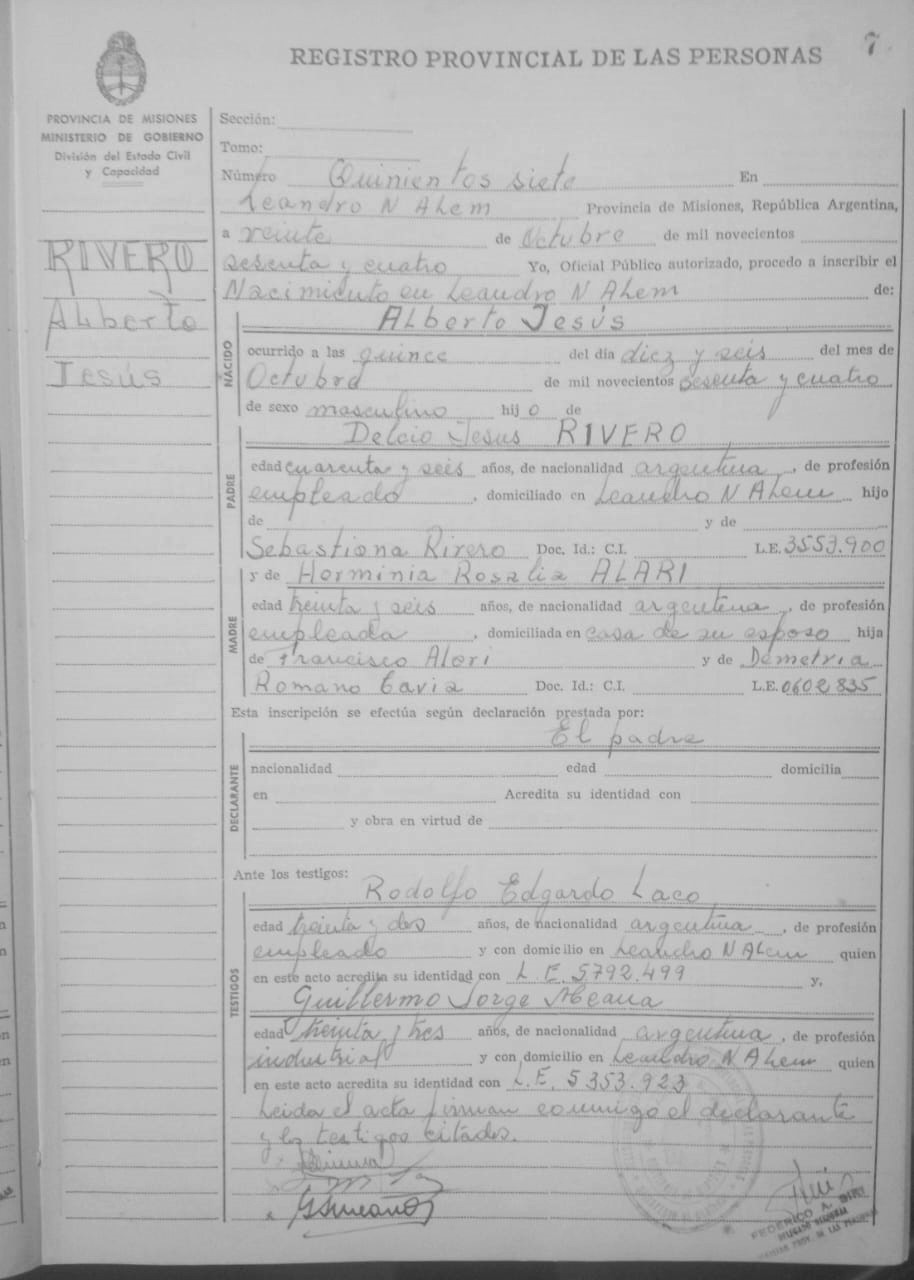 REGISTRO PROVINCIAL DE LAS PERSONAS
7
PROVINCIA DE MISIONES
MINISTERIO DE GOBIERNO
División del Estado Civil
y Capacidad
RIVERO
Alberto
Jesús
Sección:
Tomo:
Número Quinientos siete En
Leandro N Alem Provincia de Misiones, República Argentina,
a veinte de Octubre de mil novecientos
sesenta y cuatro Yo, Oficial Público autorizado, procedo a inscribir el
Nacimiento en Leandro N Alem de:
NACIDO
Alberto Jesús
ocurrido a las quince del día diez y seis del mes de
Octubre de mil novecientos sesenta y cuatro
de sexo masculino hij o de
PADRE
Delcio Jesus RIVERO
edad cuarenta y seis años, de nacionalidad argentina, de profesión
empleado, domiciliado en Leandro N Alem hijo
de y de
Sebastiana Rivero Doc. Id.: C.I. L.E. 3553.900
MADRE
y de Herminia Rosalia ALARI
edad treinta y seis años, de nacionalidad argentina, de profesión
empleada, domiciliada en casa de su esposo hija
de Francisco Alari y de Demetria
Romano Doc. Id.: C.I. L.E. 0602835
Esta inscripción se efectúa según declaración prestada por:
DECLARANTE
El padre
nacionalidad edad domicilia
en Acredita su identidad con
y obra en virtud de
Ante los testigos:
TESTIGOS
Rodolfo Edgardo Laco
edad treinta y dos años, de nacionalidad argentina, de profesión
empleado y con domicilio en Leandro N Alem quien
en este acto acredita su identidad con L.E. 5792.499 y,
Guillermo Jorge Meana
edad treinta y tres años, de nacionalidad argentina, de profesión
industrial y con domicilio en Leandro N Alem quien
en este acto acredita su identidad con L.E. 5353.923
Leida el acta firman conmigo el declarante
y los testigos citados.
FEDERICO A.